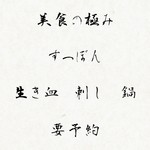 美食の極み
すっぽん
生き血 刺し 鍋
要予約